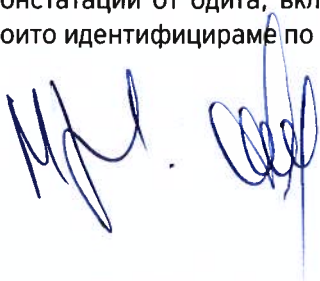 онстатации от одита, вкл
оито идентифицираме по